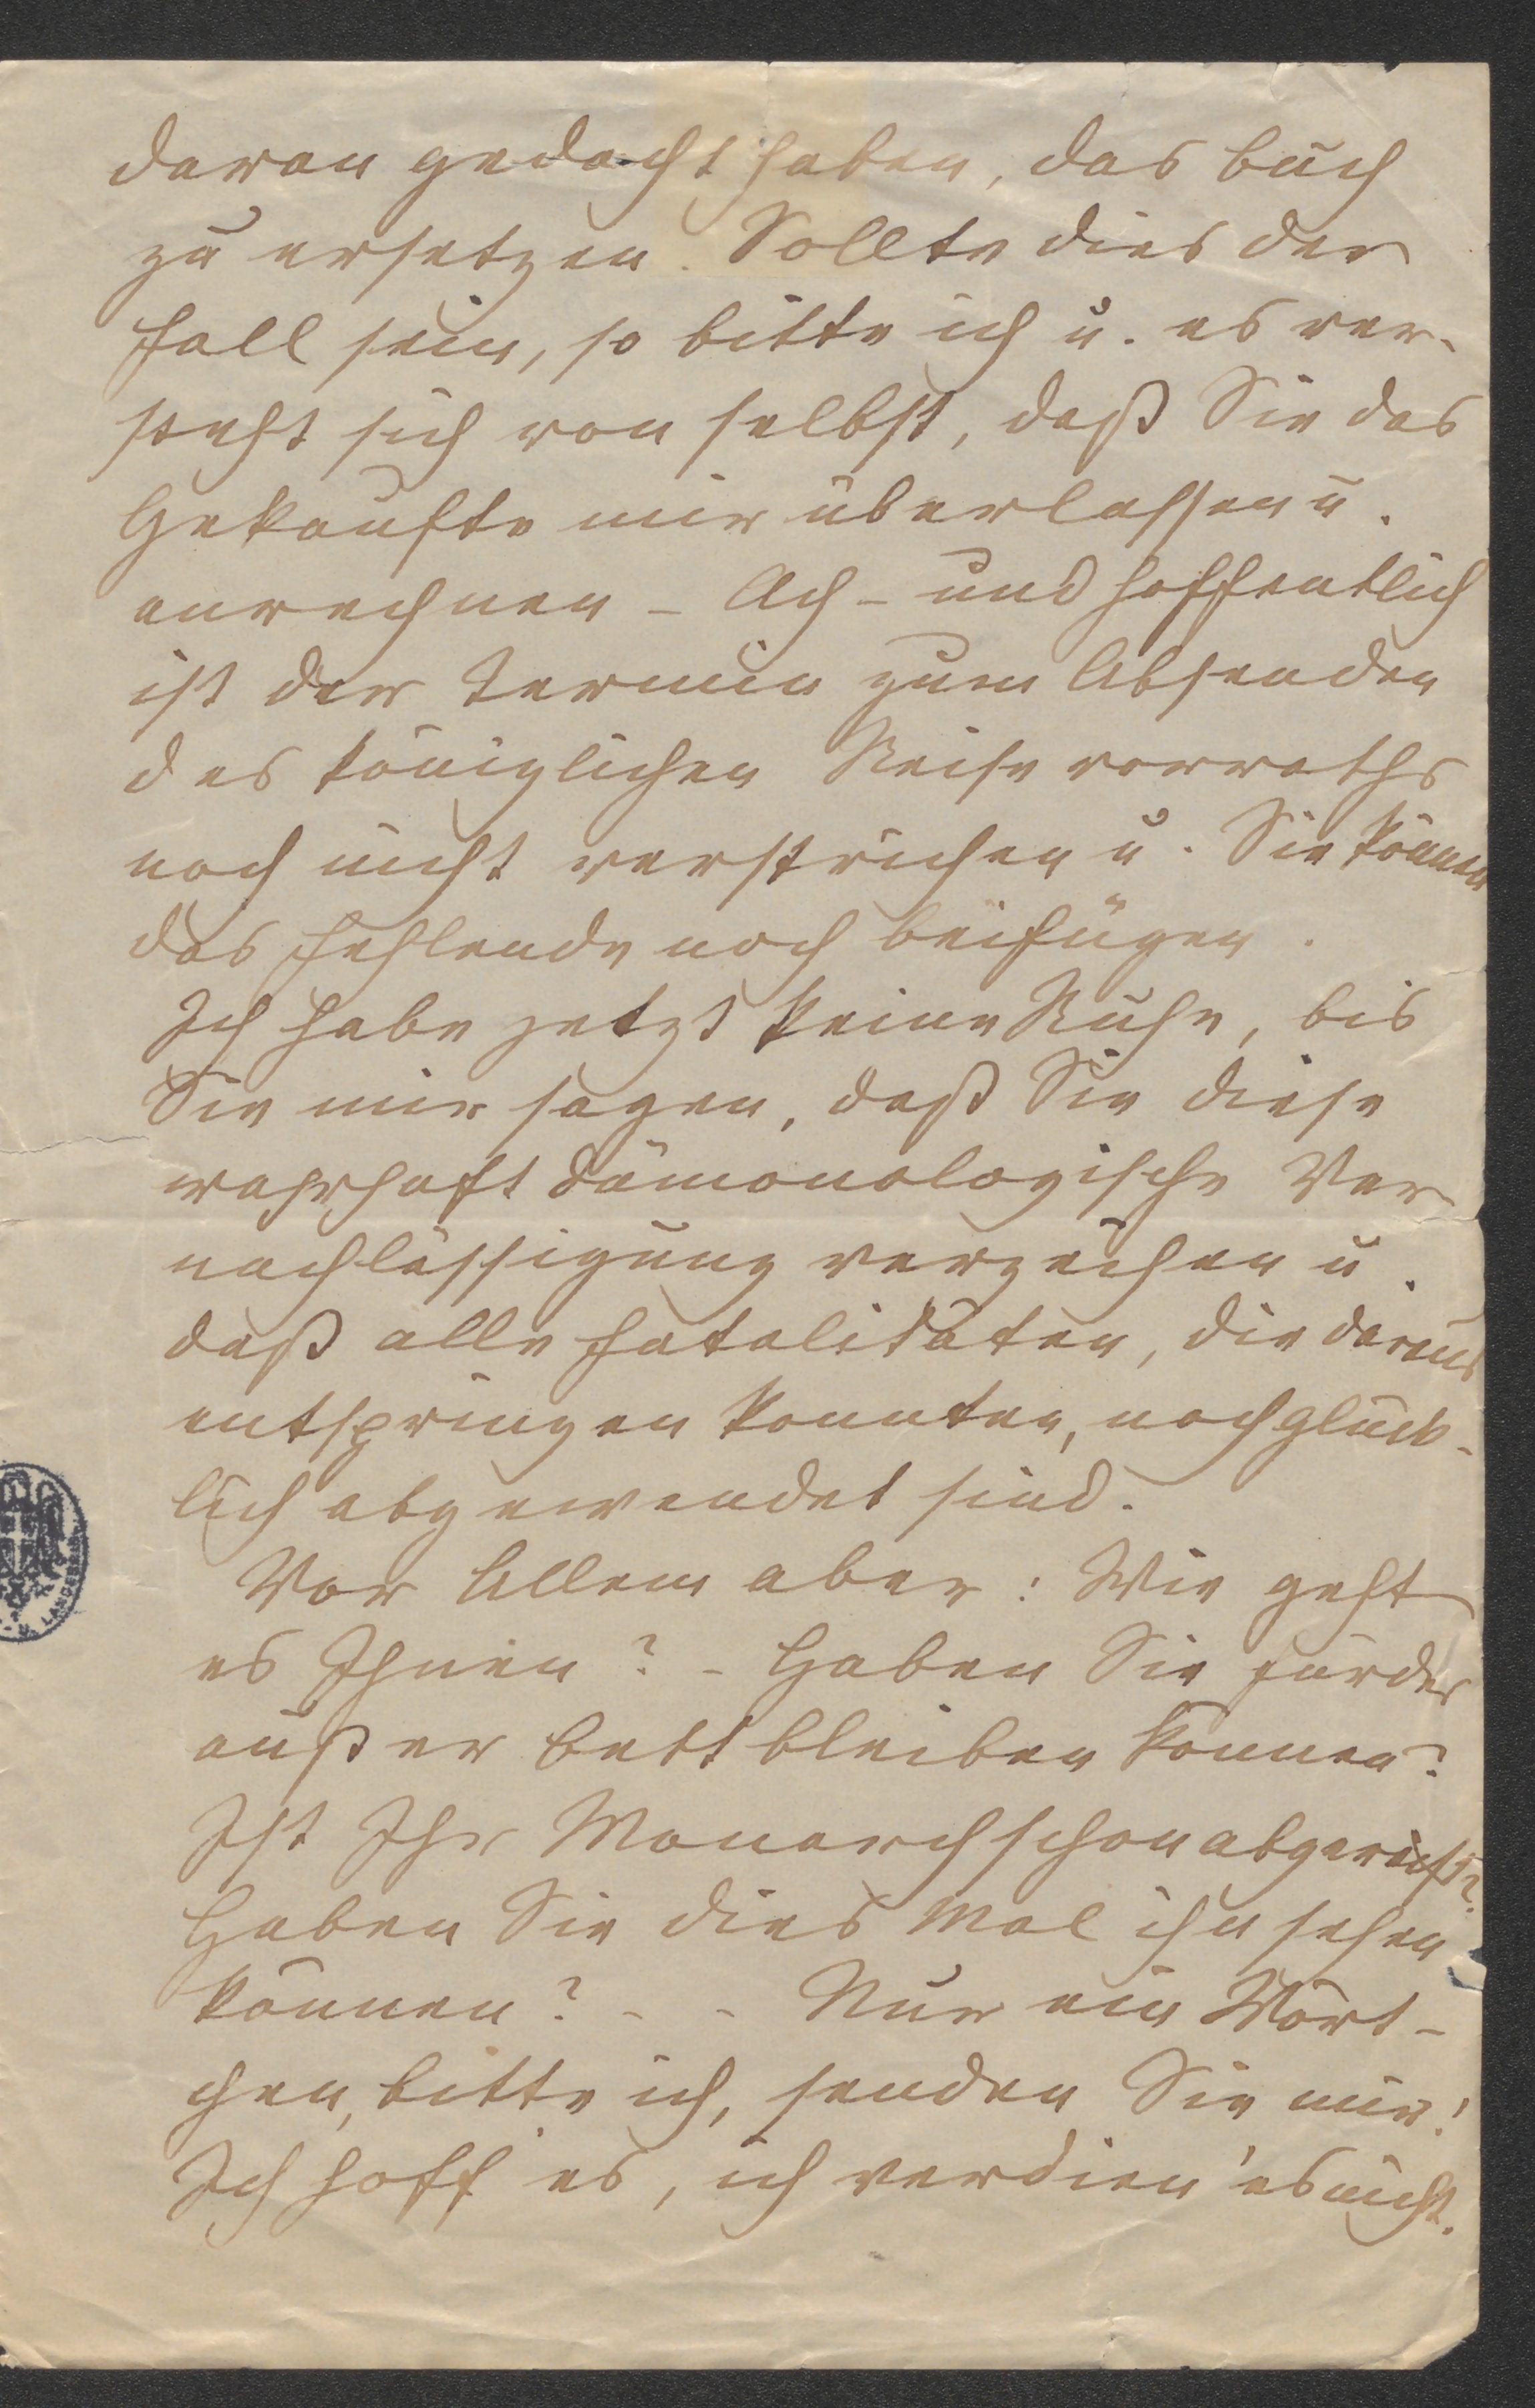 daran gedacht haben, das Buch
zu ersetzen. Sollte dies der
Fall sein, so bitte ich u. es ver-
steht sich von selbst, daß Sie das
Gekaufte mir überlassen u.
anrechnen – Ach – und hoffentlich
ist der Termin zum Absenden
des königlichen Reisevorraths
noch nicht verstrichen u. Sie können
das Fehlende noch beifügen.
Ich habe jetzt keine Ruhe, bis
Sie mir sagen, daß Sie diese
wahrhaft dämonologische Ver
nachlässigung verzeihen u.
daß alle Fatalitäten, die daraus
entspringen konnten, noch glück-
lich abgewendet sind.
Vor Allem aber: Wie geht
es Ihnen? – Haben Sie fürder
außer Bett bleiben können?
Ist Ihr Monarch schon abgereist?
Haben Sie dies Mal ihn sehen
können? – – Nur ein Wört-
chen, bitte ich, senden Sie mir!
Ich hoff es, ich verdien' es nicht.